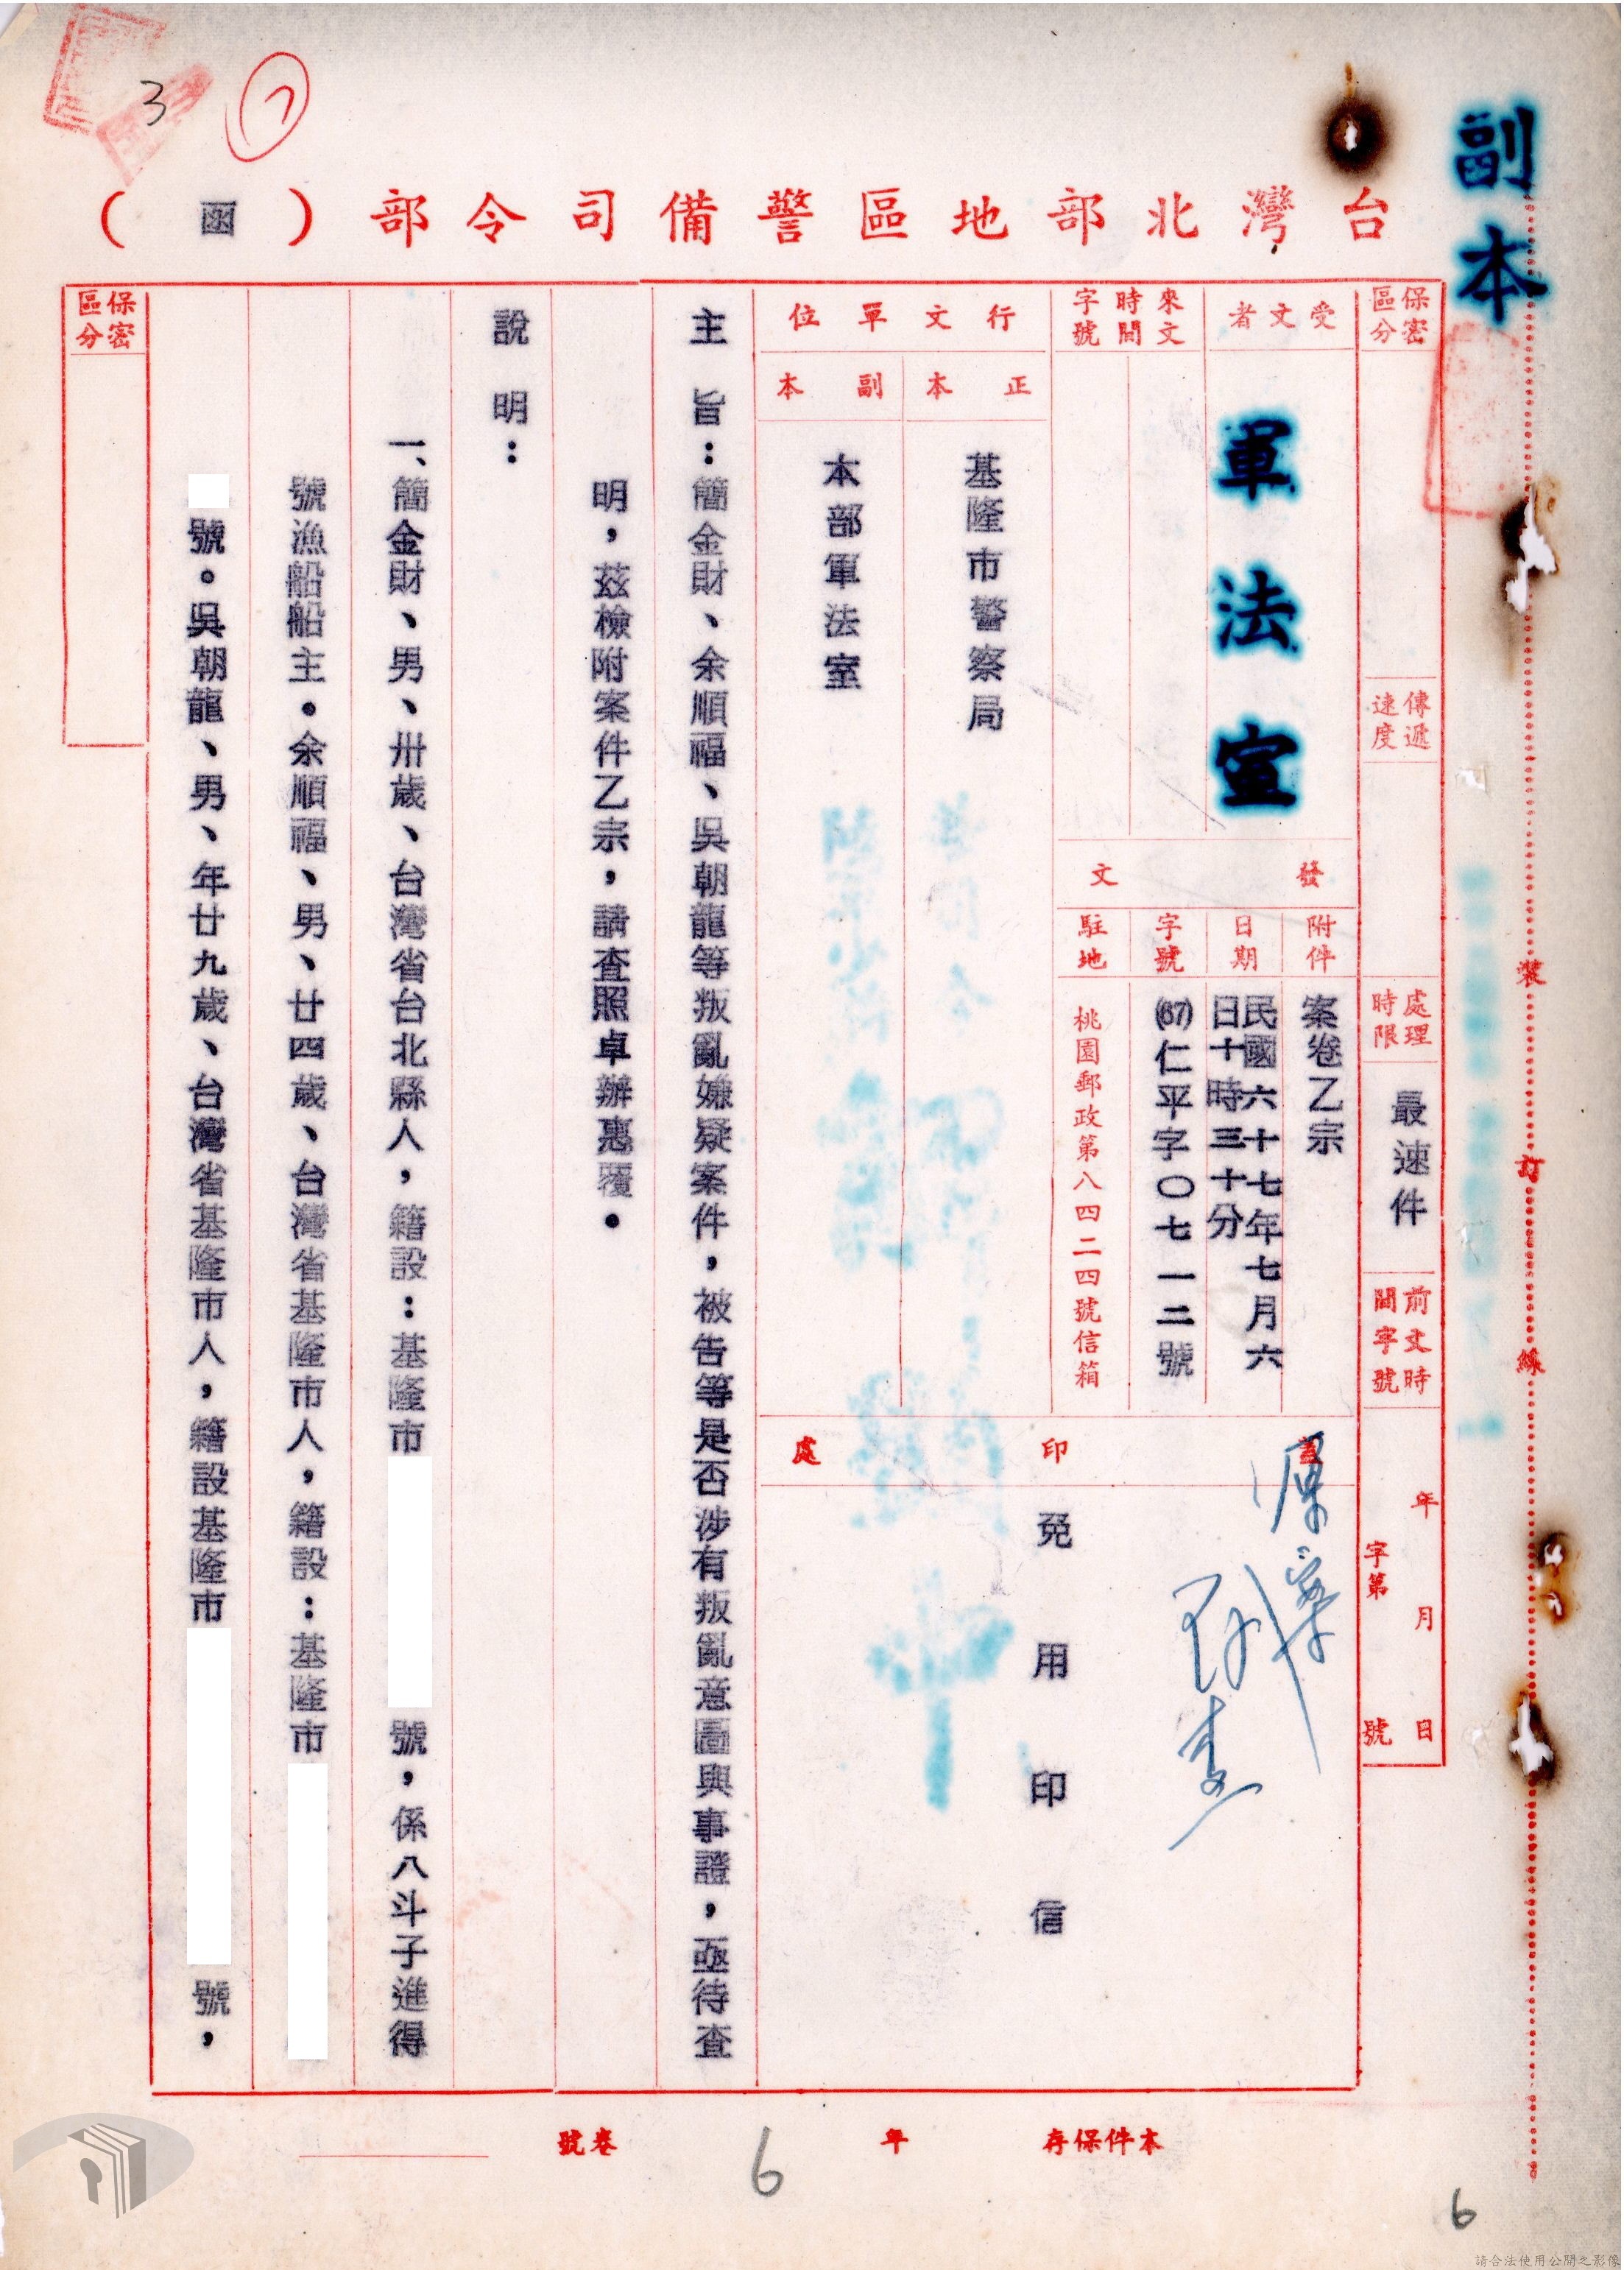 副本
3
台灣北部地區警備司令部（函）
保密區分
傳遞速度
處理時限
最速件
前文時間字號
年 月 日
字第 號
受文者
軍法室
來文時間字號
行文單位
正本
基隆市警察局
副本
本部軍法室
發文
附件
案卷乙宗
日期
民國六十七年七月六
日十時三十分
字號
(67)仁平字〇七一二號
駐地
桃園郵政第八四二四號信箱
蓋印處
免用印信
主旨：簡金財、余順福、吳朝龍等叛亂嫌疑案件，被告等是否涉有叛亂意圖與事證，亟待查
明，茲檢附案件乙宗，請查照卓辦惠覆。
說明：
一、簡金財、男、卅歲、台灣省台北縣人，籍設：基隆市 號，係八斗子進得
號漁船船主。余順福、男、廿四歲、台灣省基隆市人，籍設：基隆市
號。吳朝龍、男、年廿九歲、台灣省基隆市人，籍設基隆市 號，
保密區分
裝訂線
本件保存 年
卷號
6
6
請合法使用公開之影像